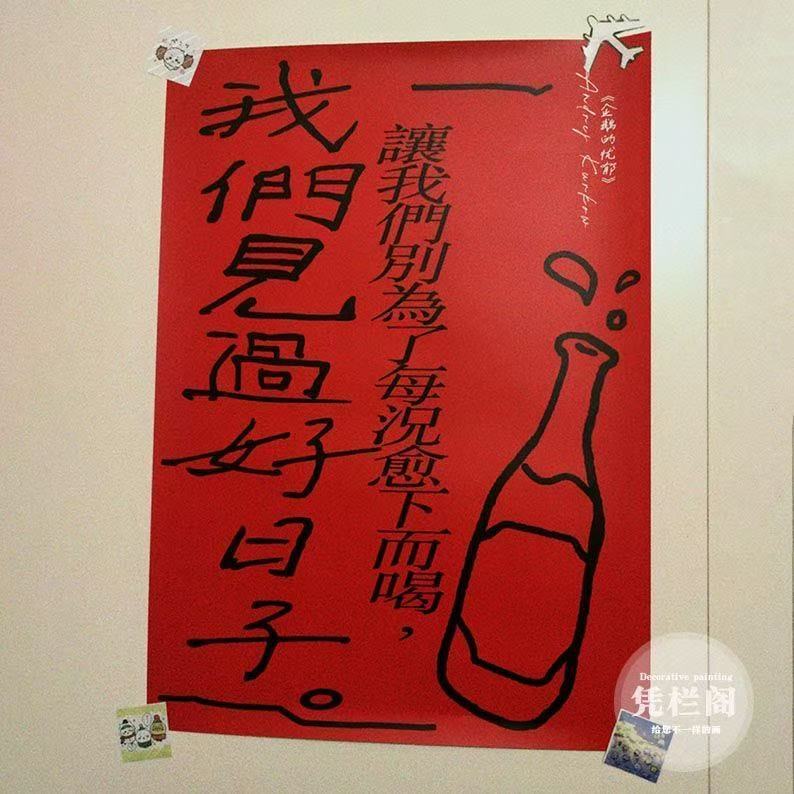 《企鹅的忧郁》
Andrey Kurkow
讓我們別為了每況愈下而喝，
我們見過好日子。
Decorative painting
凭栏阁
给您不一样的画